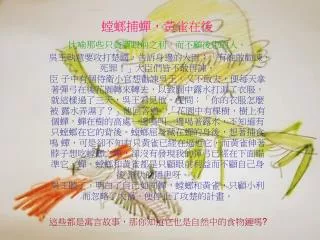 螳螂捕蟬，黃雀在後
比喻那些只貪圖眼前之利，而不顧後患的人。
吳王執意要攻打楚國，告訴身邊的大臣：「有誰敢勸諫，
死罪！」大臣們皆不敢作聲。
臣子中有個侍衛小官想勸諫吳王，又不敢去，便每天拿
著彈弓在後花園轉來轉去，以致園中露水打濕了衣服，
就這樣過了三天。吳王看見他，便問：「你的衣服怎麼
被露水弄濕了？」他回答道：「花園中有棵樹，樹上有
個蟬，蟬在樹的高處一邊鳴叫一邊喝著露水，不知道有
只螳螂在它的背後。螳螂屈身藏在蟬的身後，想著捕食
鳴蟬，可是卻不知有只黃雀已經在逼近它；而黃雀伸著
脖子想吃螳螂，卻沒有發現我的彈弓已經在下面瞄
準它。蟬、螳螂和黃雀都是只顧眼前利益而不顧自己身
後潛伏的禍患呀。」
吳王聽了，明白了自己如同蟬、螳螂和黃雀，只顧小利
而忽略了大禍，便停止了攻楚的計畫。
這些都是寓言故事，那你知道它也是自然中的食物鏈嗎?